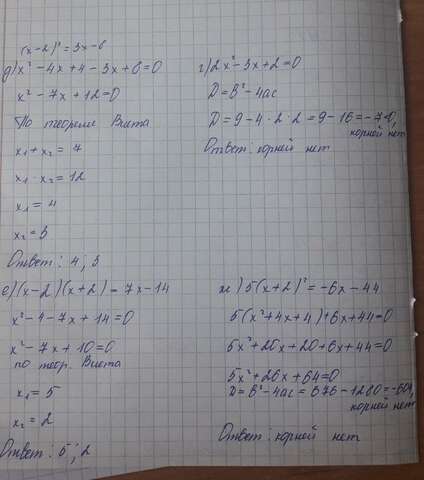 (x-2)² = 3x-8
д) x² - 4x + 4 - 3x + 8 = 0
x² - 7x + 12 = 0
По теореме Виета
x₁ + x₂ = 7
x₁ · x₂ = 12
x₁ = 4
x₂ = 3
Ответ: 4; 3
г) 2x² - 3x + 2 = 0
D = b² - 4ac
D = 9 - 4 · 2 · 2 = 9 - 16 = -7<0,
корней нет
Ответ: корней нет
е) (x-2)(x+2) = 7x-14
x² - 4 - 7x + 14 = 0
x² - 7x + 10 = 0
по теор. Виета
x₁ = 5
x₂ = 2
Ответ: 5; 2
ж) 5(x+2)² = -6x - 44
5(x² + 4x + 4) + 6x + 44 = 0
5x² + 20x + 20 + 6x + 44 = 0
5x² + 26x + 64 = 0
D = b² - 4ac = 676 - 1280 = -604,
корней нет
Ответ: корней нет